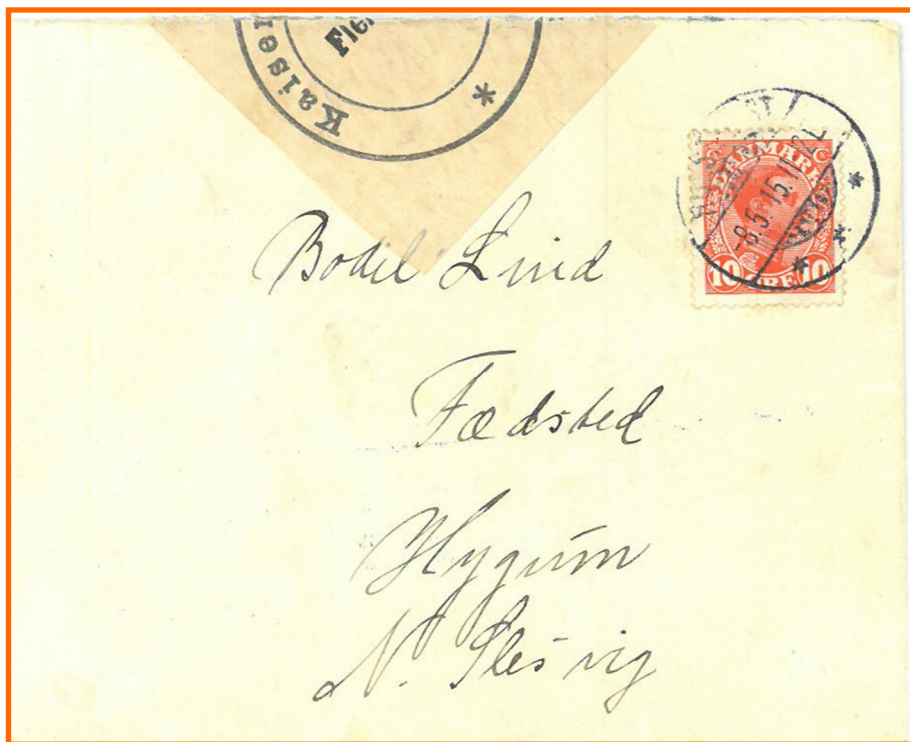 Kaiser
Fle
DANMARK
-8.5.15.11
10 ØRE 10
Bodil Lind
Fædsted
Hygum
N. Slesvig